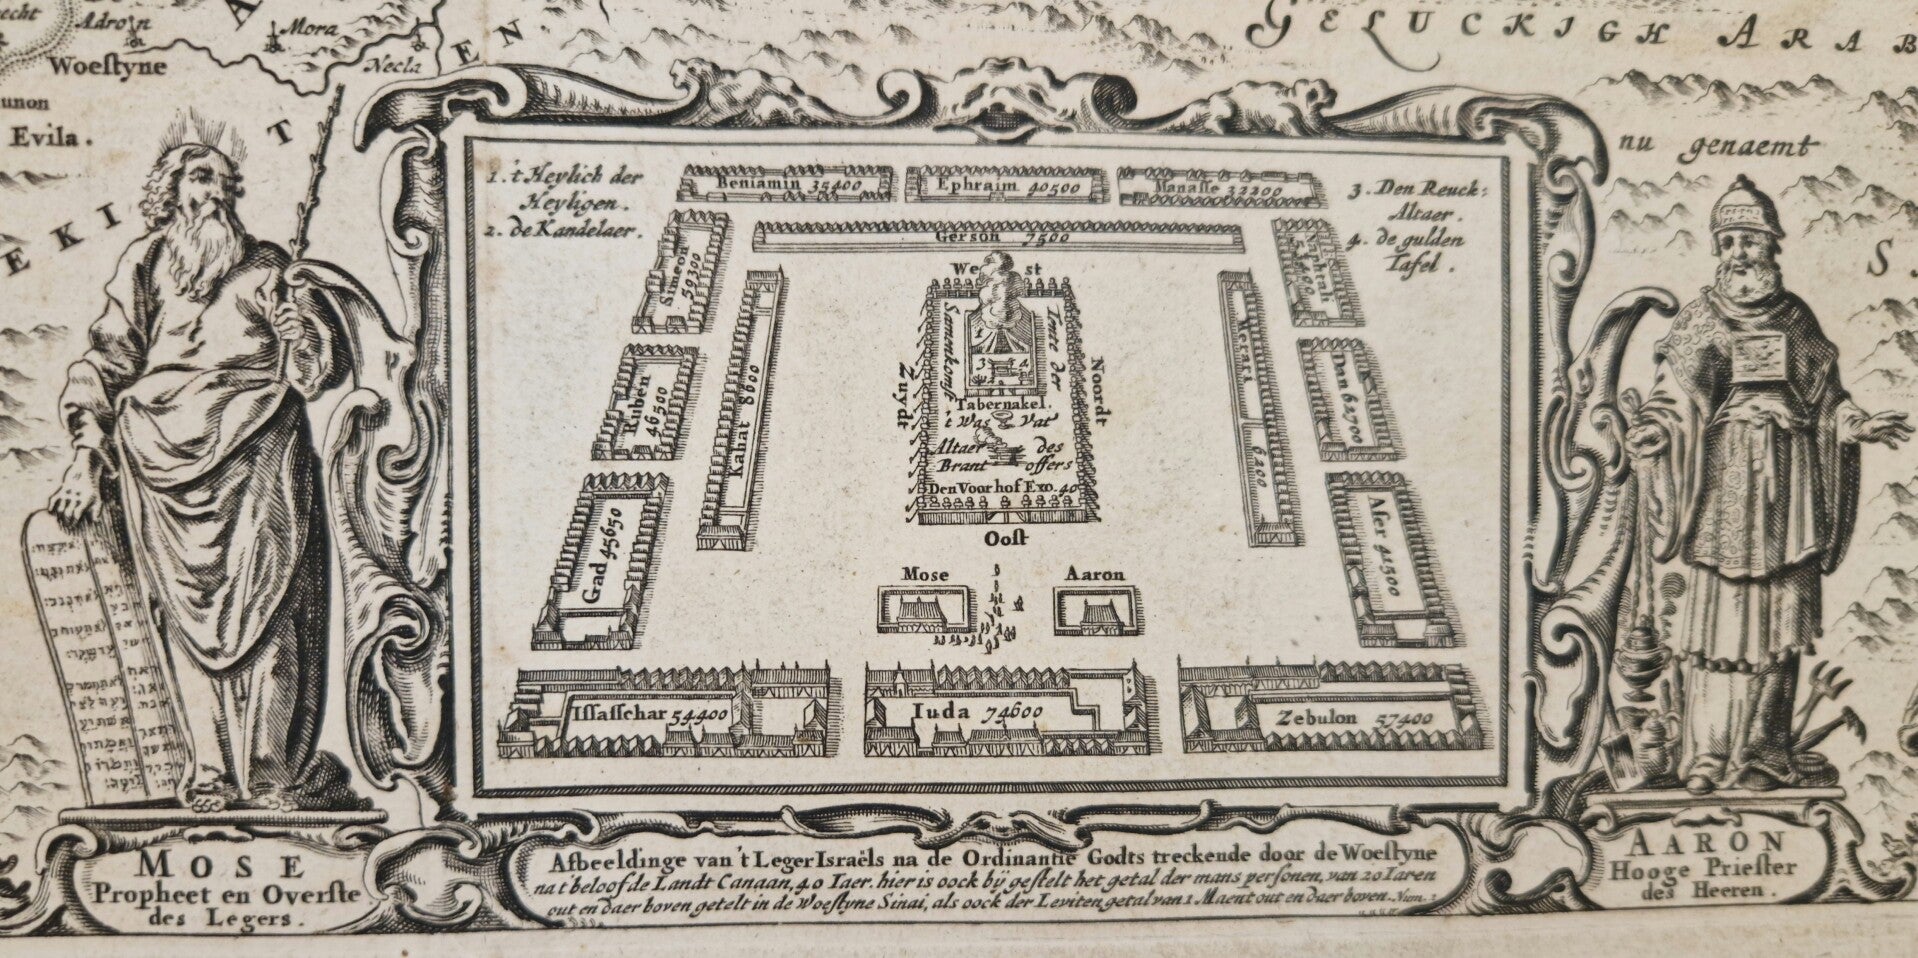 Adron
Mora
Woestyne
Necla
EN
GELUCKIGH ARAB
unon
Evila.
T
EKI
nu genaemt
S
1. 't Heylich der
Heyligen.
2. de Kandelaer.
Beniamin 35400
Ephraim 40500
Manasse 32200
3. Den Reuck:
Altaer.
4. de gulden
Tafel.
Gerson 7500
Simeon 59300
Nephtali
We st
Zuydt
Noordt
Tente der
1
3 4
2
Tabernakel.
't Was Vat
Altaer des
Brant offers
Den Voorhof Exo. 40
Oost
Ruben 46500
Kahat 8600
Merari 6200
Dan 62700
Gad 45650
Aser 41500
Mose
Aaron
Issasschar 54400
Iuda 74600
Zebulon 57400
MOSE
Propheet en Overste
des Legers.
Afbeeldinge van 't Leger Israëls na de Ordinantie Godts treckende door de Woestyne
na t' beloofde Landt Canaan, 40 Iaer. hier is oock bij gestelt het getal der mans personen, van 20 Iaren
out en daer boven getelt in de Woestyne Sinai, als oock der Leviten getal van 1 Maent out en daer boven. Num.
AARON
Hooge Priester
des Heeren.